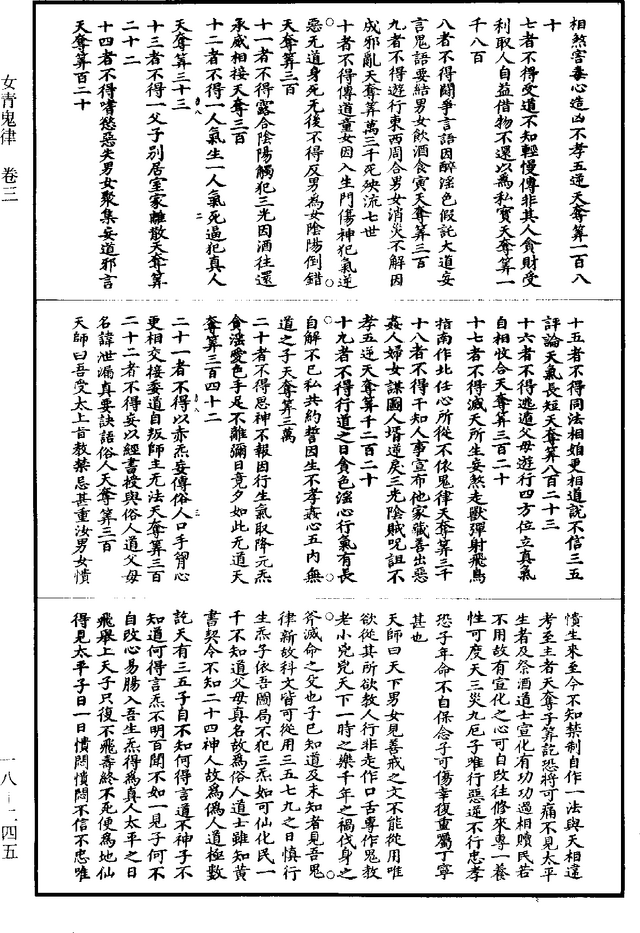 相煞害毒心造凶不孝五逆天奪筭一百八
十
七者不得受道不知輕慢傳非其人貪財受
利取人自益借物不還以為私寶天奪筭一
千八百
八者不得鬪爭言語因醉淫色假託大道妄
言鬼語要結男女飲酒食寅天奪筭三百
九者不得遊行東西周合男女消災不解因
成邪亂天奪筭萬三千死殃流七世
十者不得傳道童女因入生門傷神犯氣逆
惡无道身死无後不得反男為女陰陽倒錯
天奪筭三百
十一者不得露合陰陽觸犯三光因酒往還
承威相接天奪筭三百
十二者不得一人氣生一人氣死逼犯真人
天奪筭三十三
十三者不得一父子別居室家離散天奪筭
二十二
十四者不得嗜慾惡失男女聚集妄道邪言
天奪筭百二十
十五者不得同法相妬更相道說不信三五
評論天氣長短天奪筭八百二十三
十六者不得逃遁父母遊行四方位立真氣
自相收合天奪筭三百二十
十七者不得滅天所生妄煞走獸彈射飛鳥
指南作北任心所從不依鬼律天奪筭三千
十八者不得干知人事宣布他家藏善出惡
姦人婦女謀圖人壻逆戾三光陰賊呪詛不
孝五逆天奪筭千二百二十
十九者不得行道之日貪色淫心行氣有長
自解不已私共約誓因生不孝姦心五內無
道之子天奪筭三萬
二十者不得思神不報因行生氣取降元炁
貪淫愛色手足不離彌日竟夕如此无道天
奪筭三百四十二
二十一者不得以赤炁妄傳俗人口手胷心
更相交接委道自叛師主无法天奪筭三百
二十二者不得妄以經書授與俗人道父母
名諱泄漏真要訣語俗人天奪筭三百
天師曰吾受太上旨教禁忌甚重汝男女憒
憒生來至今不知禁制自作一法與天相違
考至主者天奪子筭訖恐將可痛不見太平
生者及祭酒道士宣化有功功過相贖民若
不用故有宣化之心可自改往修來專一養
性可度天三災九厄子唯行惡逆不行忠孝
恐子年命不自保念子可傷幸復重囑丁寧
甚也
天師曰天下男女見善戒之文不能從用唯
欲從其所欲教人行非走作口舌專作鬼教
老小党党天下一時之樂千年之禍伐身之
斧滅命之父也子已知道及未知者見吾鬼
律新故科文皆可從用三五七九之日慎行
生炁子依吾圖局不犯三炁如可仙化民一
千不知道父母真名故為俗人道士雖知黃
書契令不知二十四神人故為偽人道極數
訖天有三五子自不知何得言道不神子不
知道何得言炁不明百聞不如一見子何不
自改心易腸入吾生炁得為真人太平之日
飛舉上天子只復不飛壽終不死便為地仙
得見太平子日一日憒悶憒悶不信不忠唯
女青鬼律　卷三
一八－二四五